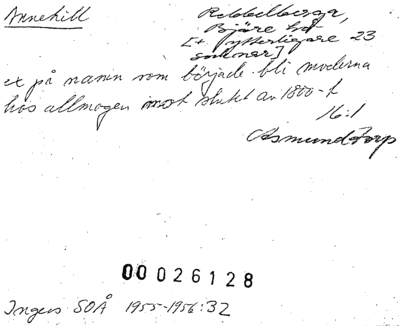 Annehill
Rebbelberga,
Bjäre hd
[+ ytterligare 23
socknar]
ex på namn som började bli moderna
hos allmogen mot slutet av 1800-t
16:1
Asmundtorp
00026128
Ingers SOÅ 1955-1956:32